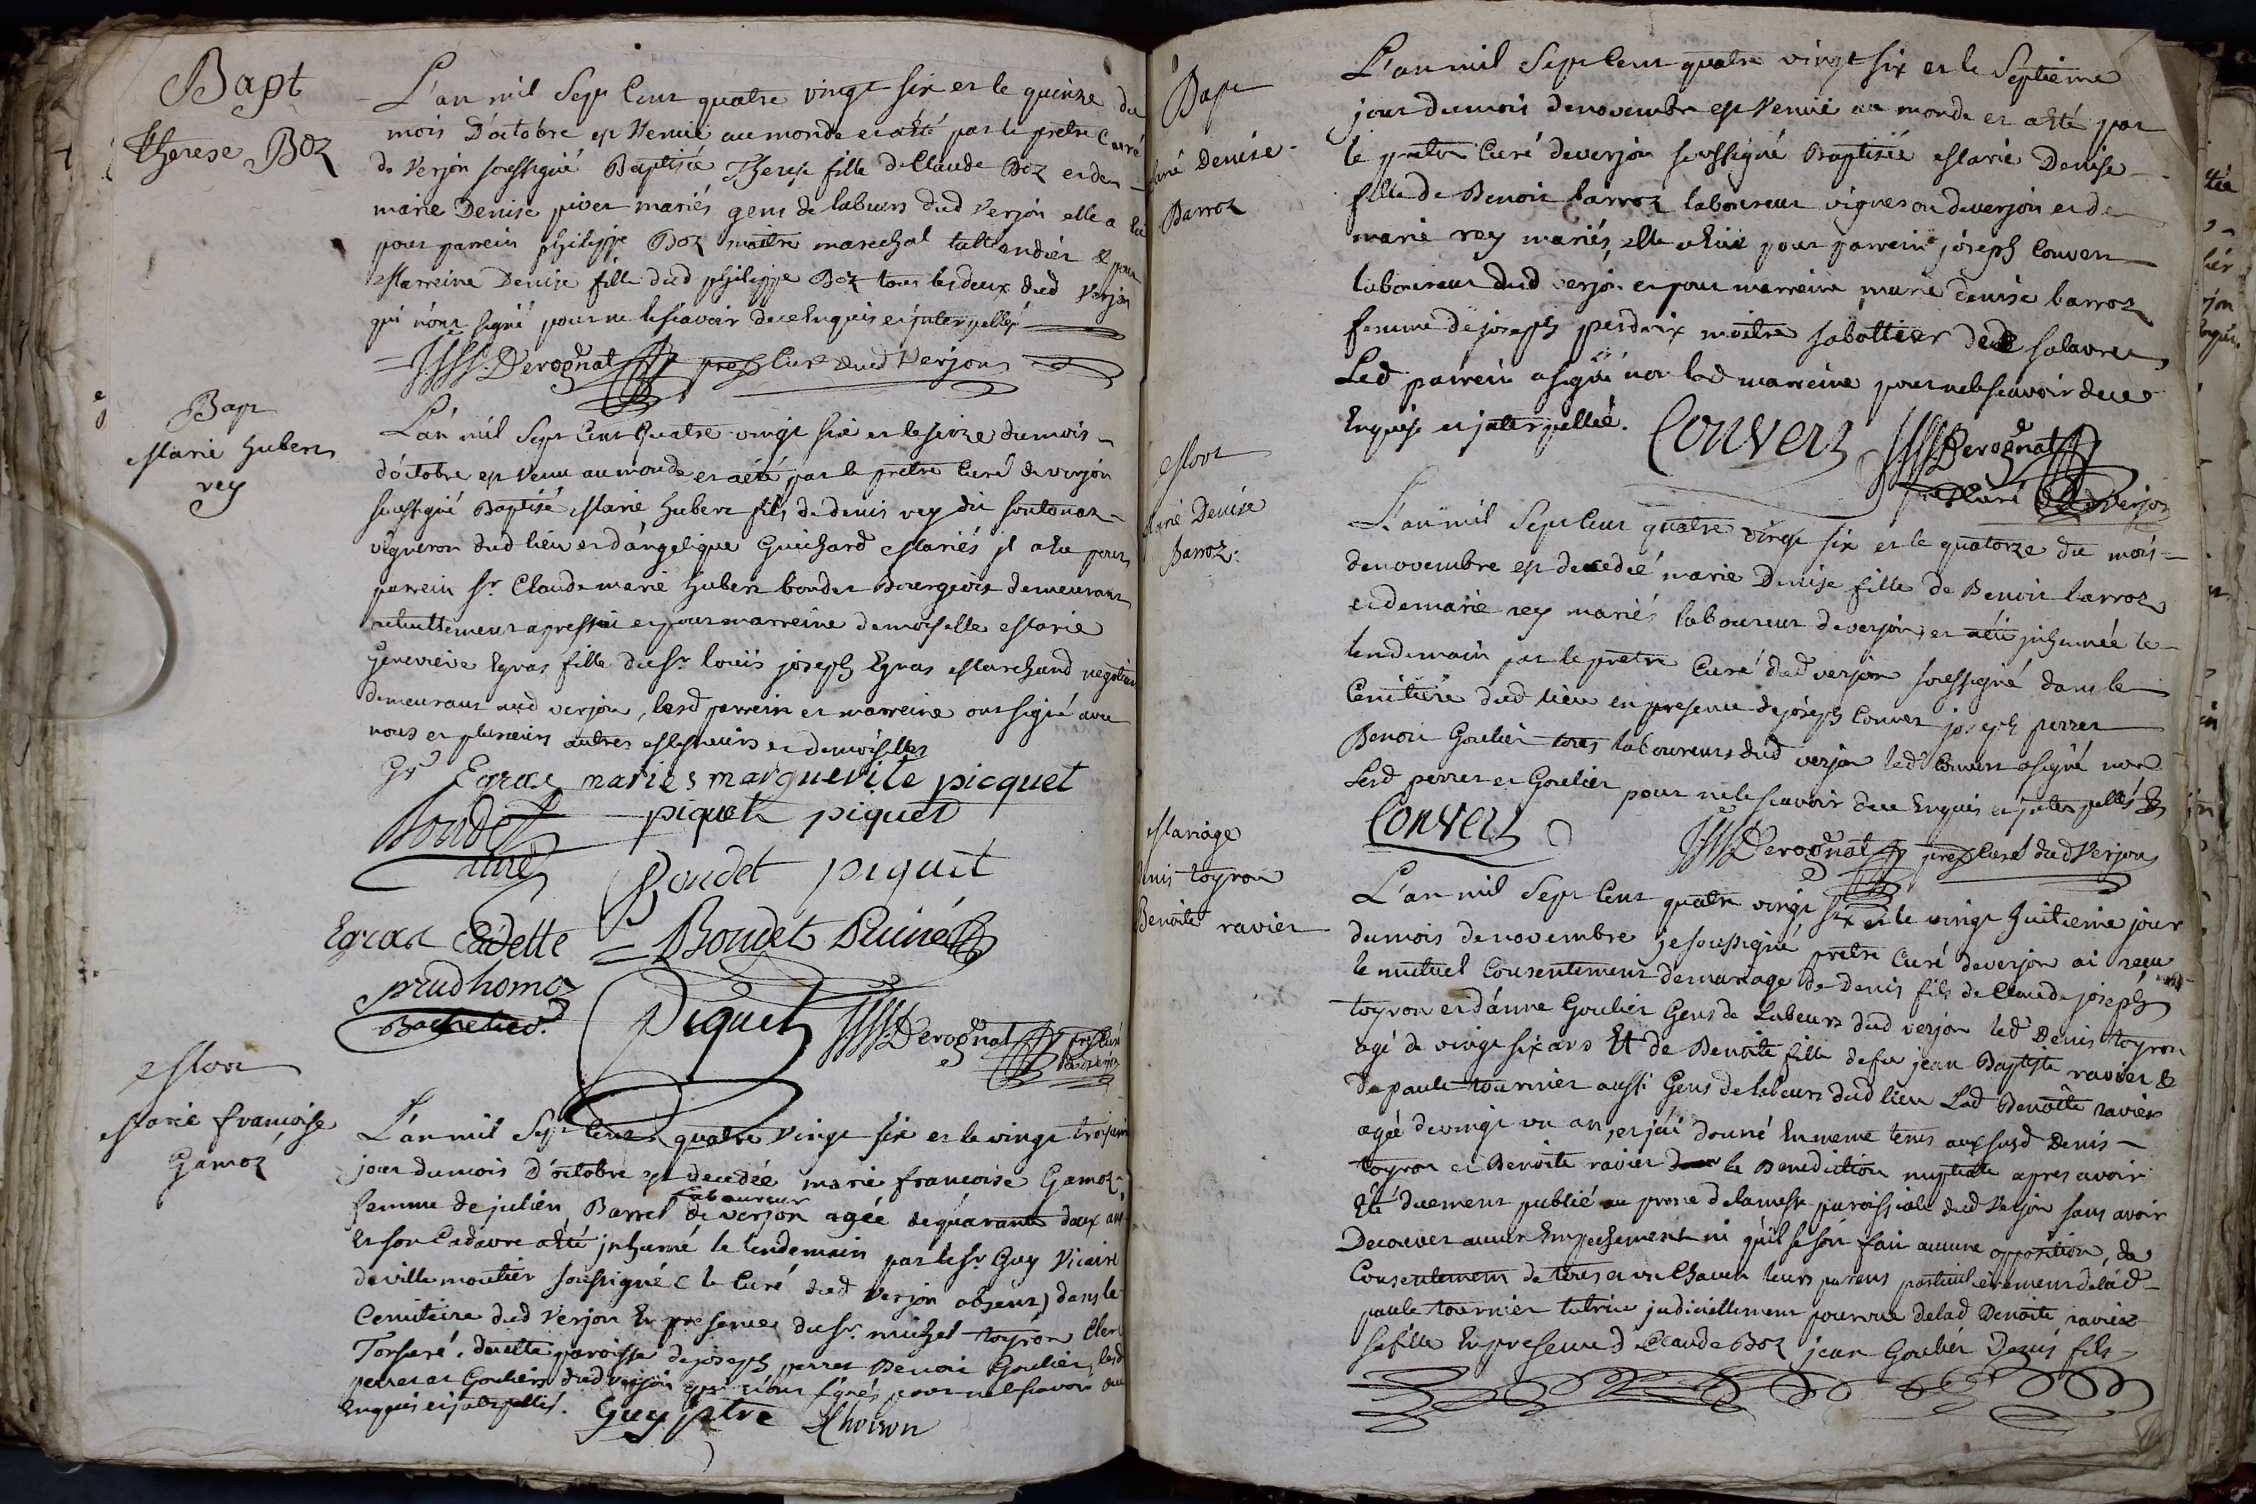 Bapt
Therese Boz
L'an mil Sept Cent quatre vingt six et le quinze du
mois D'octobre est Venuë au monde et a été par le pretre Curé
de Verjon soussigné Baptisée Therese fille de Claude Boz et de
marie Denise mariés gens de labeurs dud Verjon elle a eu
pour parrein philippe Boz maitre marechal taillandier & pour
Marreine Denise fille dud philippe Boz tous les deux dud Verjon
qui n'ont signé pour ne le sçavoir de ce Enquis et interpellés
Derognat pretre Curé dud Verjon
Bapt
Marie hubert
rey
L'an mil Sept Cent Quatre vingt six et le seize du mois
d'octobre est Venu au monde et a été par le pretre Curé de verjon
soussigné Baptisé Marie hubert fils de denis rey dit
vigneron dud lieu et d'angelique Guichard Mariés il a eu pour
parrein Sr. Claude marie hubert bondet Bourgeois demeurant
actuellement a pressiat et pour marreine demoiselle Marie
Genevieve Egras fille du Sr. louis joseph Egras Marchand negotiant
demeurant aud verjon, lesd parrein et marreine ont signé avec
nous et plusieurs autres Messieurs et demoiselles
Gv Egras marie s marguerite picquet
Bondet piquet piquet
Bondet piquet
Egras Cadette = Bondet Puiné
prudhomoz
Bachelier
Piquet Derognat pretre Curé
de verjon
Mort
Marie francoise
Gamoz
L'an mil Sept Cent quatre vingt six et le vingt troisieme
jour du mois D'octobre est decedée marie francoise Gamoz
laboureur
femme de julien Barret de verjon agée de quarante deux ans
et son Cadavre a été inhumé le lendemain par le Sr. Guy Vicaire
de villemoutier soussigné (le Curé dud Verjon absent) dans le
Cemitiere dud Verjon En presence du Sr. michel toyron Clerc
Tonsuré, de cette paroisse de joseph perret Benoit Goulier, lesd
perret et Goulier dud verjon qui n'ont signés pour ne le sçavoir de ce
Enquis et interpellés. Guy ptre
Bapt
Marie Denise
Barroz
L'an mil Sept Cent quatre vingt six et le Septieme
jour du mois de novembre est Venuë au monde et a été par
le pretre Curé de verjon soussigné Baptisée Marie Denise
fille de Benoit barroz laboureur vigneron de verjon et de
marie rey mariés, elle a eu pour parrein joseph Convert
laboureur dud verjon et pour marreine marie denise barroz
femme de joseph perdrix maitre sabottier de salavre
Led parrein a signé non lad marreine pour ne le sçavoir de ce
Enquise et interpellée. Convert Derognat
pretre Curé dud Verjon
Mort
Marie Denise
Barroz.
L'an mil Sept Cent quatre vingt six et le quatorze du mois
de novembre est decedée marie Denise fille de Benoit barroz
et de marie rey mariés laboureur de verjon, et a été inhumée le
lendemain par le pretre Curé dud verjon soussigné dans le
Cemitiere dud lieu en presence de joseph Convert joseph perret
Benoit Goulier tous laboureurs dud verjon led Convert a signé non
Lesd perret et Goulier pour ne le sçavoir de ce Enquis et interpellés
Convert Derognat pretre Curé dud Verjon
Mariage
denis toyron
Benoite ravier
L'an mil Sept Cent quatre vingt six et le vingt huitieme jour
du mois de novembre je soussigné pretre Curé de verjon ai reçu
le mutuel Consentement de mariage de denis fils de Claude joseph
toyron et d'anne Goulier Gens de Labeurs dud verjon led Denis toyron
agé de vingt six ans Et de Benoite fille de feu jean Baptiste ravier &
de paule tournier aussi Gens de labeurs dud lieu Lad Benoite ravier
agée de vingt un an, et j'ai donné En meme tems aux susd Denis
toyron et Benoite ravier la Benediction nuptiale apres avoir
Eté duement publié au prone de la messe paroissiale dud Verjon sans avoir
Decouvert aucun Empechement ni qu'il se soit fait aucune opposition, du
Consentement de tous et un Chacun leurs parens particulierement de lad
paule tournier tutrice judiciellement pourvue de lad Benoite ravier
sa fille En presence de Claude Boz jean Goulier Denis fils